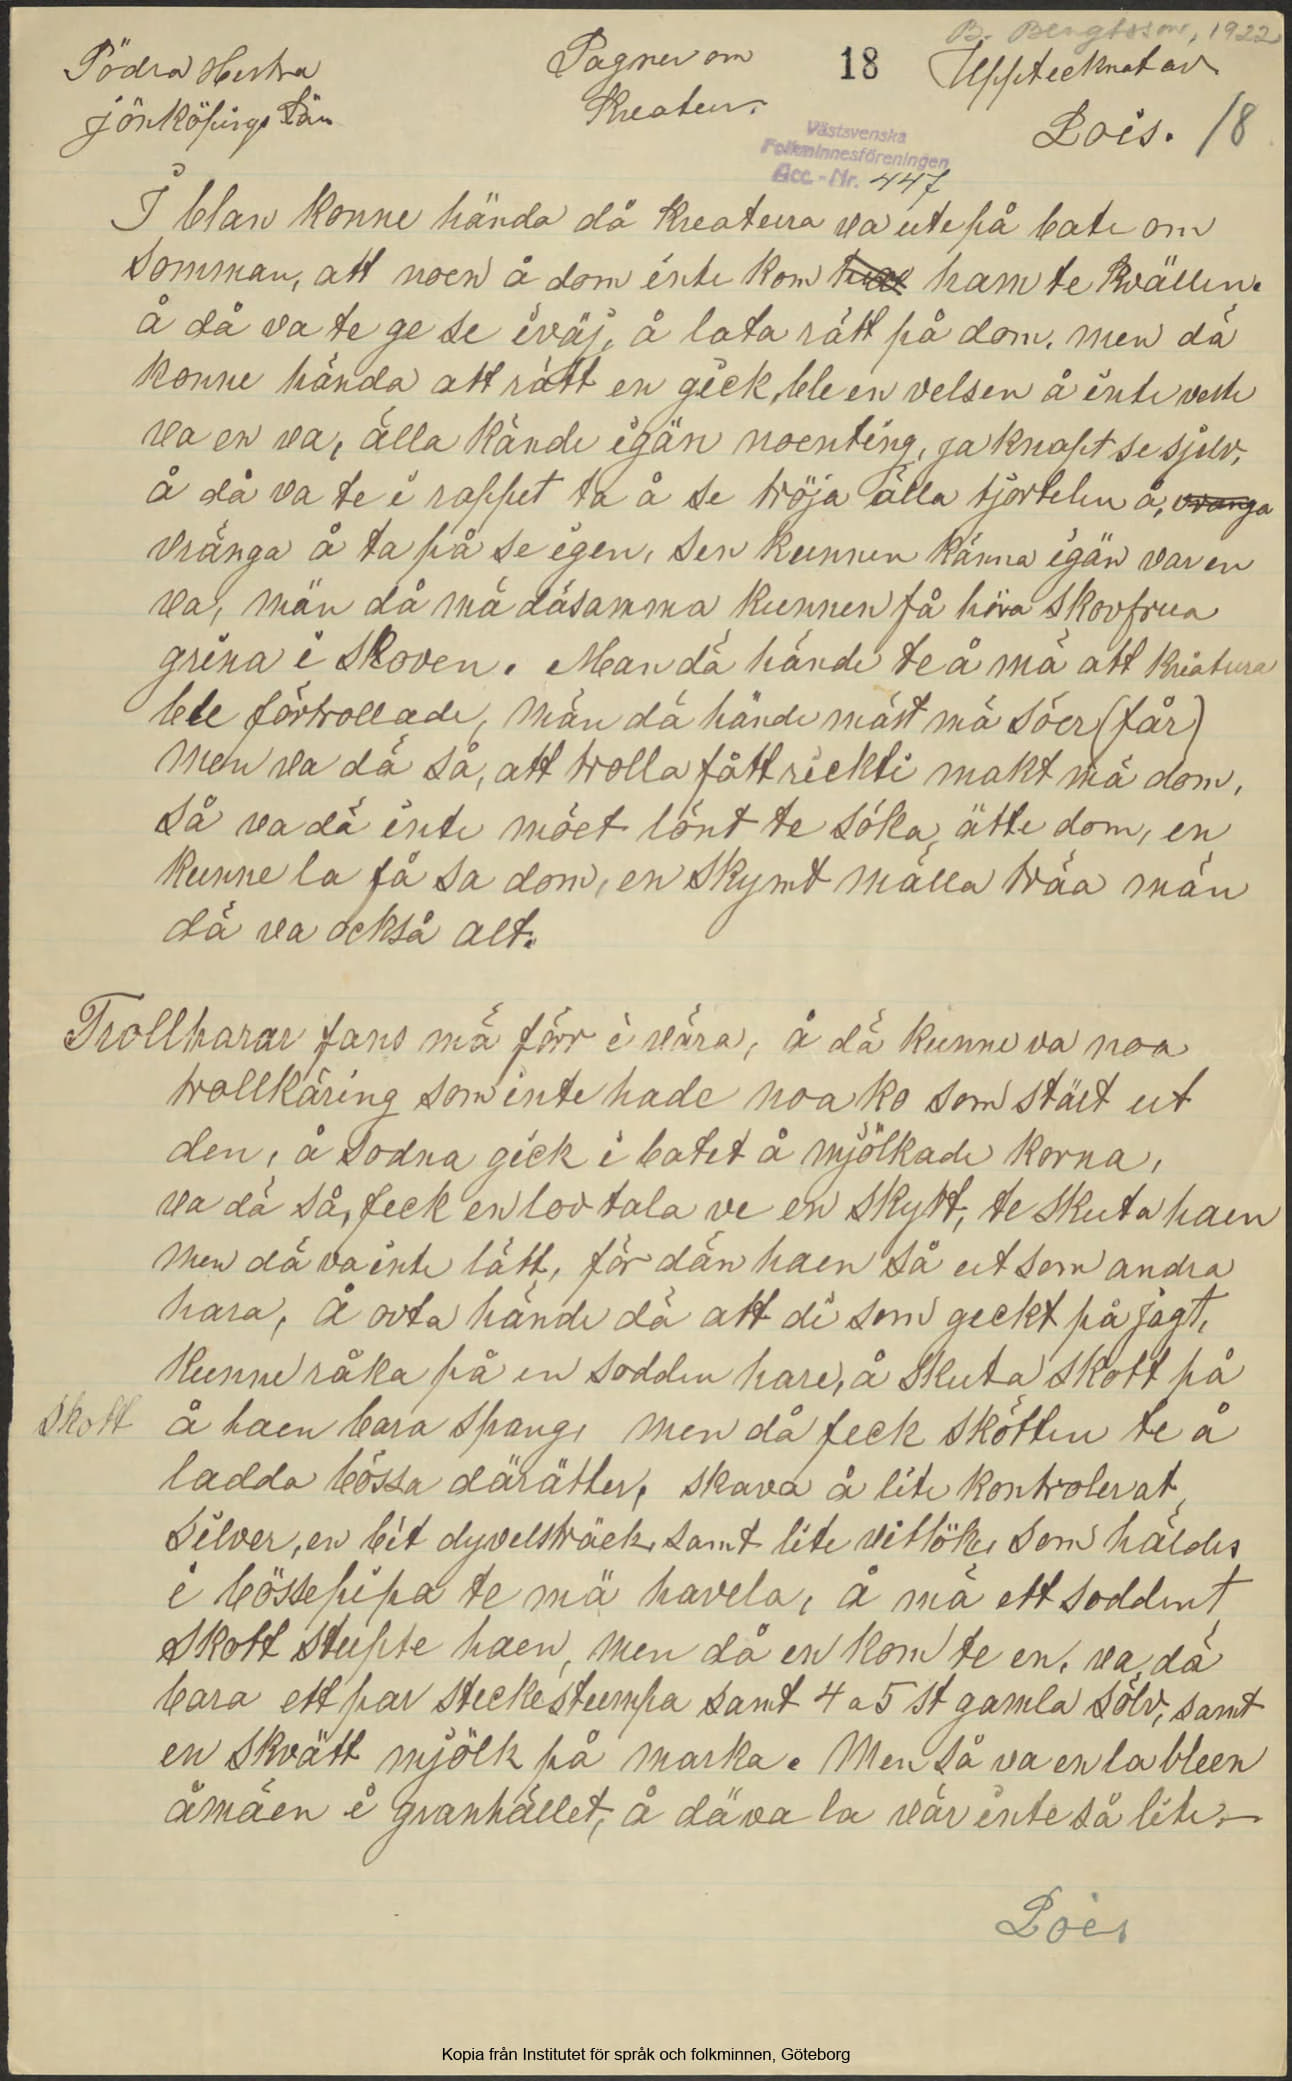 B. Bengtsson, 1922
Södra Hestra
Jönköpings Län
Sagner om
Kreatur.
18
Upptecknat av
Lois. 18
Västsvenska
Folkminnesföreningen
Acc.-Nr. 447
I blan konne hända då kreatura va ute på bate om
somman, att noen å dom inte kom ham te kvällen.
å då va te ge se iväj, å lata rätt på dom, men dä
konne hända att rätt en geck, ble en velsen å inte veste
va en va, älla kände igän noenting, ja knapt se sjelv,
å då va te i rappet ta å se tröja älla tjortelen å, vranga
vränga å ta på se egen, sen kunnen känna igän var en
va, män då mä däsamma kunnen få höra skovfrua
grina i skoven. Man dä hände te å mä att kriatura
ble förtrollade, män dä hände mäst mä söer (får)
men va dä så, att trolla fått rickti makt mä dom,
så va dä inte möet lönt te söka ätte dom, en
kunne la få sa dom, en skymt mälla träa män
dä va också alt.
Trollharar fans mä förr i våra, å dä kunne va noa
trollkäring som inte hade noa ko som stäet ut
den, å sodna geck i batet å mjölkade korna,
va dä så, feck en lov tala ve en skytt, te skuta haen
men dä va inte lätt, för dän haen så ut som andra
hara, å ovta hände dä att di som geckt på jagt,
kunne råka på en sodden hare, å skuta skott på
skott å haen bara sprang, men då feck skötten te å
ladda bössa därätter, skava å lite kontrolerat
silver, en bit dyvelsträck, samt lite vitlök, som häldes
i bössepipa te mä havela, å mä ett soddent
skott stupte haen, men då en kom te en, va dä
bara ett par steckestumpa samt 4 a 5 st gamla sölv, samt
en skvätt mjölk på marka. Men så va en la bleen
åmäen i granhället, å dä va la vär inte så lite.
Lois
Kopia från Institutet för språk och folkminnen, Göteborg